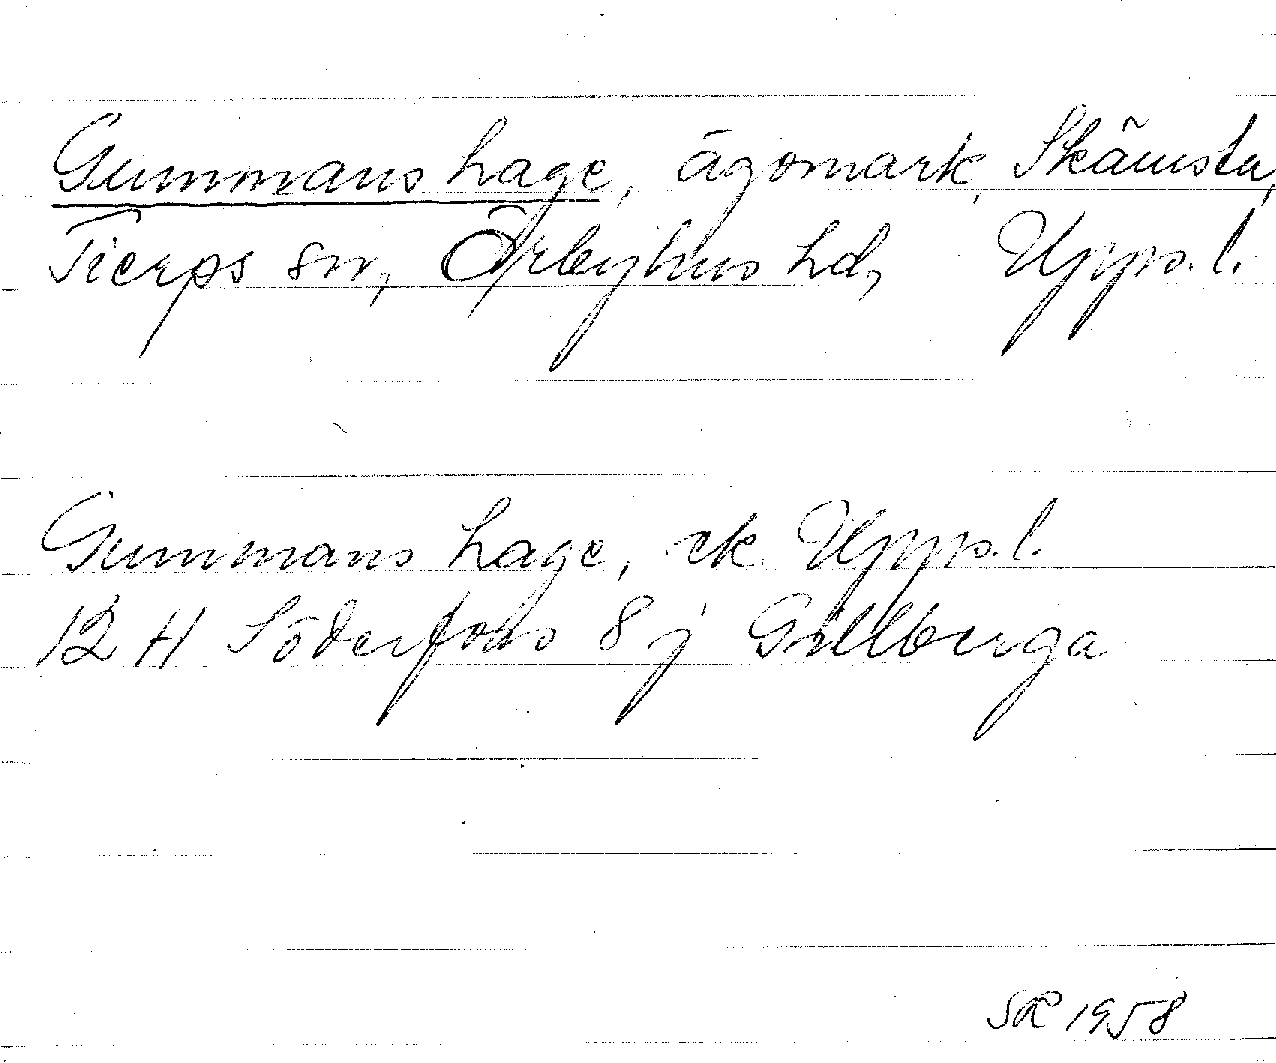 Gummans hage, ägomark, Skämsta,
Tierps sn, Örbyhus hd, Upps. l.
Gummans hage, ek. Upps. l.
12 H Söderfors 8 j Gillberga
SR 1958